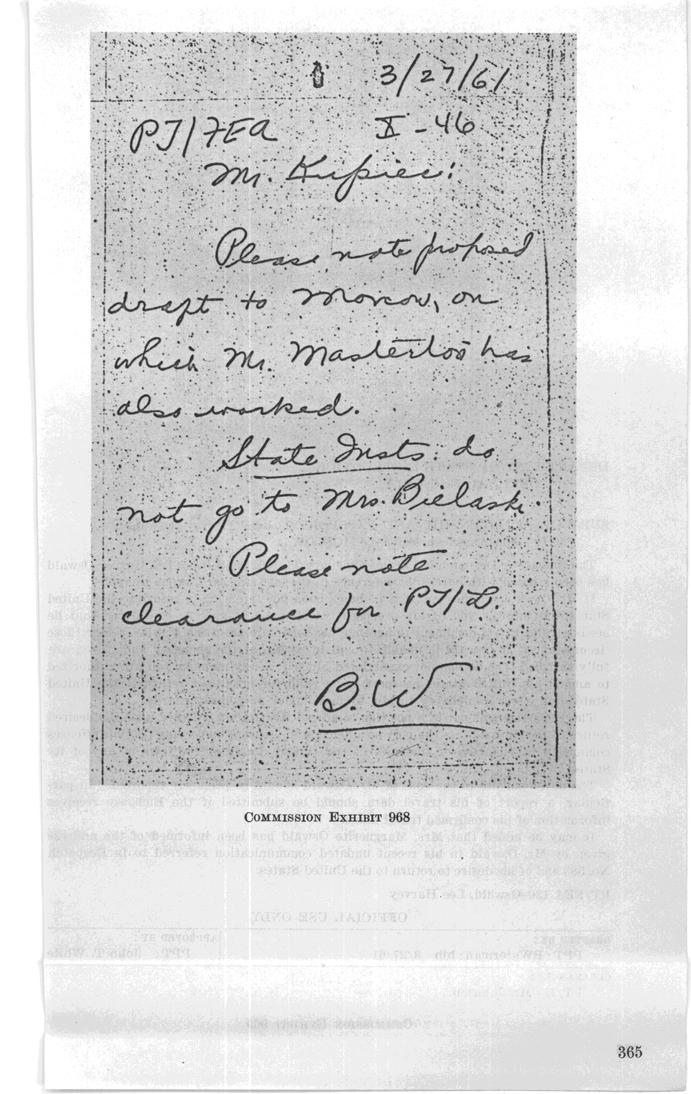 3/27/61
PT/FEA X-46
Mr. Kupiec:
Please note proposed
draft to Moscow, on
which Mr. Masterton has
also worked.
State Insts. do
not go to Mrs. Bielaski.
Please note
clearance for PT/L.
B.W
COMMISSION EXHIBIT 968
365